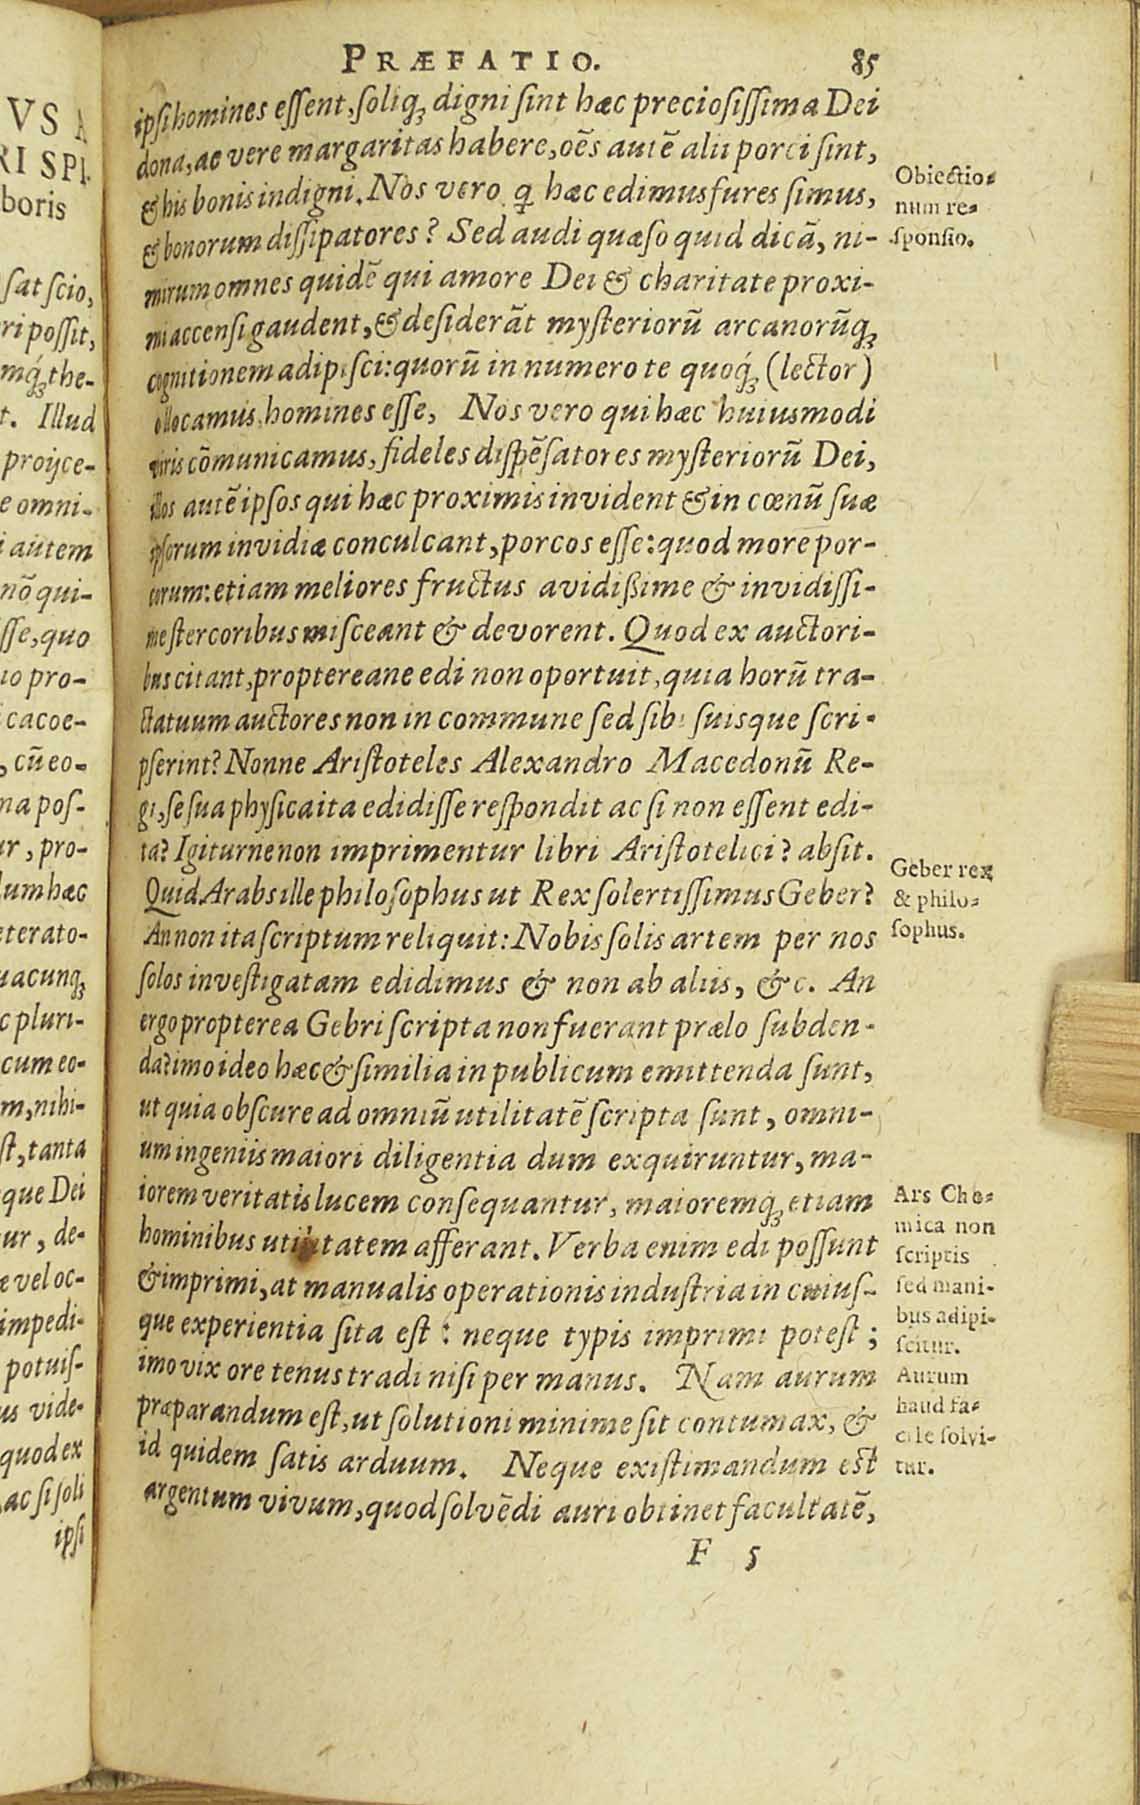 PRÆFATIO. 85
ipsi homines essent, soliq́ꝫ digni sint hæc preciosissima Dei
dona, ac vere margaritas habere, oẽs autẽ alii porci sint,
& his bonis indigni. Nos vero ꝗ hæc edimus fures simus,
& bonorum dissipatores? Sed audi quæso quid dicã, ni-
mirum omnes quidẽ qui amore Dei & charitate proxi-
mi accensi gaudent, & desiderãt mysteriorũ arcanorũqꝫ
cognitionem adipisci: quorũ in numero te quoq́ꝫ (lector)
collocamus, homines esse, Nos vero qui hæc huiusmodi
viris cõmunicamus, fideles dispẽsatores mysteriorũ Dei,
illos autẽ ipsos qui hæc proximis invident & in cœnũ suæ
ipsorum invidiæ conculcant, porcos esse: quod more por-
corum: etiam meliores fructus avidißime & invidissi-
me stercoribus misceant & devorent. Quod ex auctori-
bus citant, proptereane edi non oportuit, quia horũ tra-
ctatuum auctores non in commune sed sibi suisque scri-
pserint? Nonne Aristoteles Alexandro Macedonũ Re-
gi, se sua physica ita edidisse respondit ac si non essent edi-
ta? Igitur ne non imprimentur libri Aristotelici? absit.
Quid Arabs ille philosophus ut Rex solertissimus Geber?
An non ita scriptum reliquit: Nobis solis artem per nos
solos investigatam edidimus & non ab aliis, &c. An
ergo propterea Gebri scripta non fuerant prælo subden-
da? imo ideo hæc & similia in publicum emittenda sunt,
ut quia obscure ad omniũ utilitatẽ scripta sunt, omni-
um ingeniis maiori diligentia dum exquiruntur, ma-
iorem veritatis lucem consequantur, maioremq́ꝫ etiam
hominibus utilitatem afferant. Verba enim edi possunt
& imprimi, at manualis operationis industria in cuius-
que experientia sita est: neque typis imprimi potest;
imo vix ore tenus tradi nisi per manus. Nam aurum
præparandum est, ut solutioni minime sit contumax, &
id quidem satis arduum. Neque existimandum est
argentum vivum, quod solvẽdi auri obtinet facultatẽ,
F 5
Obiectio-
num re-
sponsio.
Geber rex
& philo-
sophus.
Ars Che-
mica non
scriptis
sed mani-
bus adipi-
scitur.
Aurum
haud fa-
cile solvi-
tur.
VS
RI SPI
boris
sat scio,
ri possit,
mq́ꝫ the-
t. Illud
proijce-
e omni-
autem
nõ qui-
sse, quo
uo pro-
cacoe-
, cũ eo-
na pos-
ur, pro-
lum hæc
eterato-
uacunqꝫ
c pluri-
cum eo-
m, nihi-
st, tanta
que Dei
ur, de-
æ vel oc-
impedi-
potuis-
us vide-
quod ex
ac si soli
ipsi